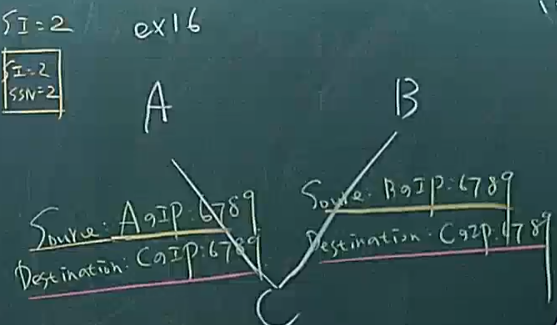 SI=2
ex16
SI=2
SSN=2
A
B
Source: AのIP:6789
Destination: CのIP:6789
Source: BのIP:6789
Destination: CのIP:6789
C